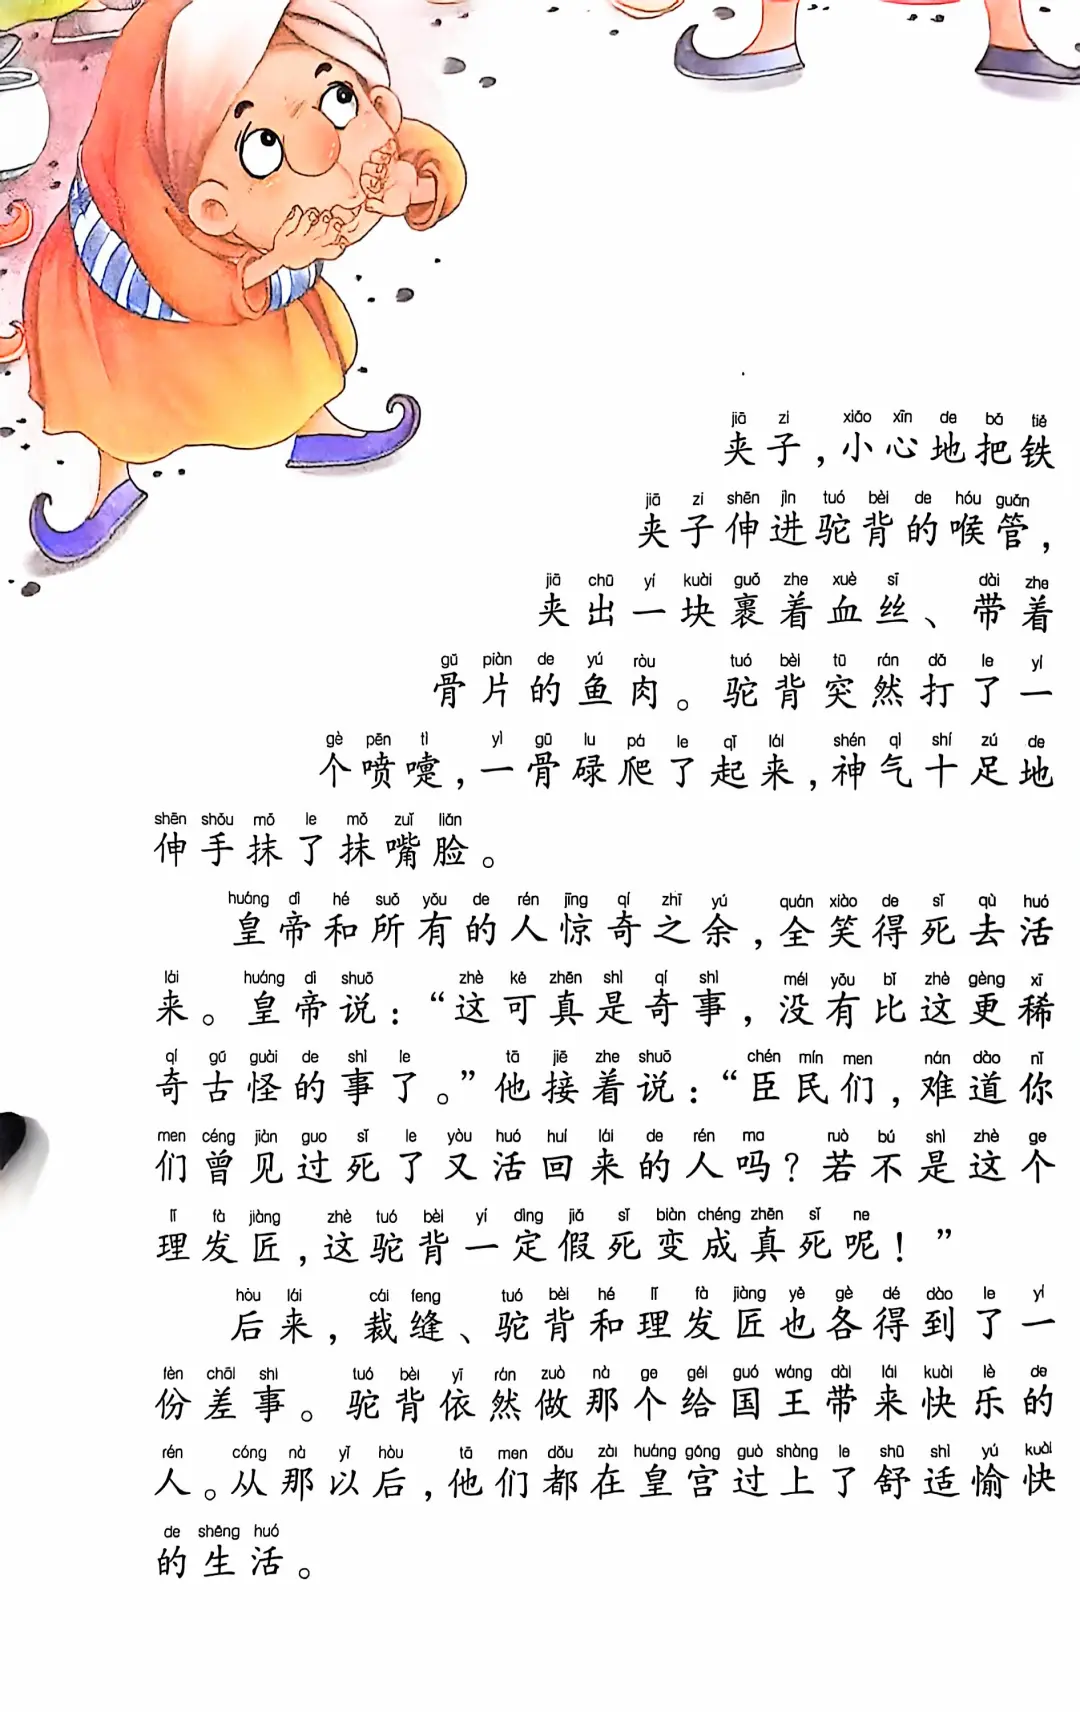 jiā zi xiǎo xīn de bǎ tiě
夹子，小心地把铁
jiā zi shēn jìn tuó bèi de hóu guǎn
夹子伸进驼背的喉管，
jiā chū yí kuài guǒ zhe xuè sī dài zhe
夹出一块裹着血丝、带着
gǔ piàn de yú ròu tuó bèi tū rán dǎ le yí
骨片的鱼肉。驼背突然打了一
gè pēn tì yì gū lu pá le qǐ lái shén qì shí zú de
个喷嚏，一骨碌爬了起来，神气十足地
shēn shǒu mǒ le mǒ zuǐ liǎn
伸手抹了抹嘴脸。
huáng dì hé suǒ yǒu de rén jīng qí zhī yú quán xiào de sǐ qù huó
皇帝和所有的人惊奇之余，全笑得死去活
lái huáng dì shuō zhè kě zhēn shì qí shì méi yǒu bǐ zhè gèng xī
来。皇帝说：“这可真是奇事，没有比这更稀
qí gǔ guài de shì le tā jiē zhe shuō chén mín men nán dào nǐ
奇古怪的事了。”他接着说：“臣民们，难道你
men céng jiàn guo sǐ le yòu huó huí lái de rén ma ruò bú shì zhè ge
们曾见过死了又活回来的人吗？若不是这个
lǐ fà jiàng zhè tuó bèi yí dìng jiǎ sǐ biàn chéng zhēn sǐ ne
理发匠，这驼背一定假死变成真死呢！”
hòu lái cái feng tuó bèi hé lǐ fà jiàng yě gè dé dào le yí
后来，裁缝、驼背和理发匠也各得到了一
fèn chāi shi tuó bèi yī rán zuò nà ge gěi guó wáng dài lái kuài lè de
份差事。驼背依然做那个给国王带来快乐的
rén cóng nà yǐ hòu tā men dōu zài huáng gōng guò shàng le shū shì yú kuài
人。从那以后，他们都在皇宫过上了舒适愉快
de shēng huó
的生活。